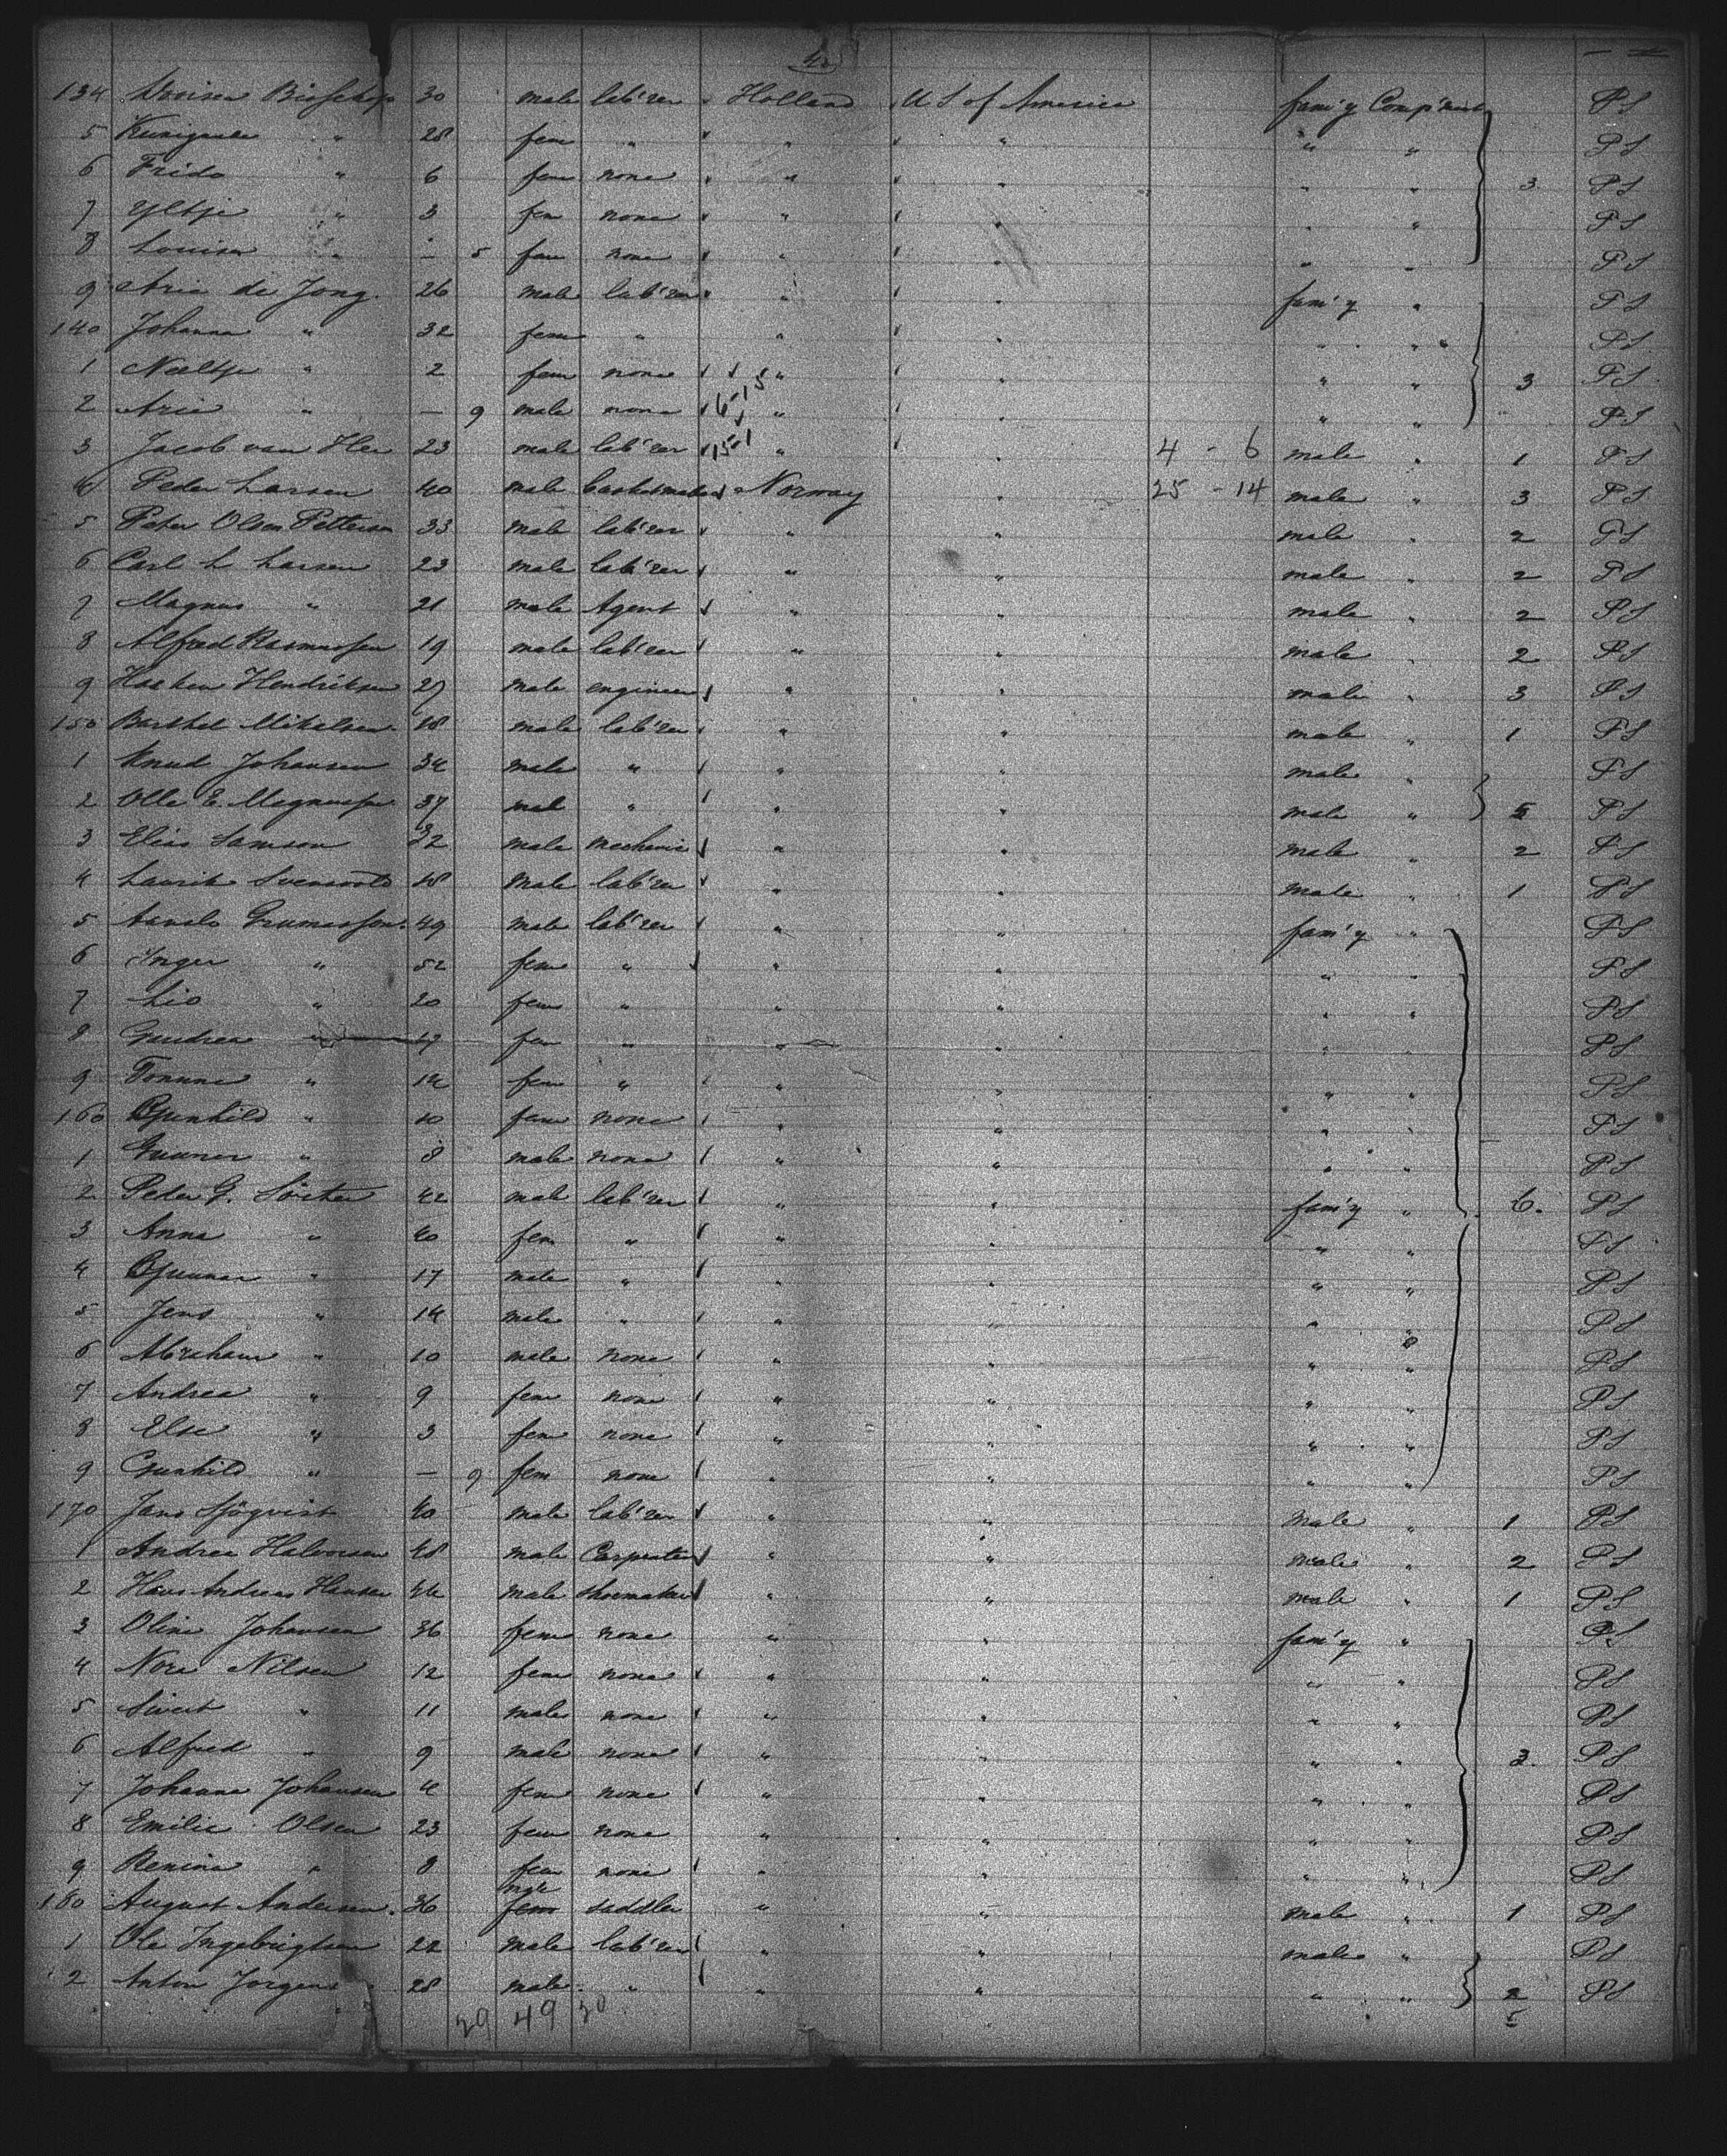 134 Bisschop 30 male lab'rer Holland U S of America fam'y Comp'ment PS
5 " 28 fem " " " " " PS
6 Frida " 6 fem none " " " " 3 PS
7 Yltje " 3 fem none " " " " PS
8 Louisa " - 5 fem none " " " " PS
9 Arie de Jong. 26 male lab'rer " " fam'y " PS
140 Johanna " 32 fem " " " " " PS
1 Neeltje " 2 fem none " " " " 3 PS
2 Arie " - 9 male none " " " " PS
3 Jacob van 23 male lab'rer " " 4 - 6 male " 1 PS
4 Peder Larsen 40 male Norway " 25 - 14 male " 3 PS
5 Peter Olsen Petterson 33 male lab'rer " " male " 2 PS
6 Carl L Larsen 23 male lab'rer " " male " 2 PS
7 Magnus " 21 male Agent " " male " 2 PS
8 Alfred Rasmussen 19 male lab'rer " " male " 2 PS
9 Haaken Hendriksen 27 male engineer " " male " 3 PS
150 Barthel Mikelsen 48 male lab'rer " " male " 1 PS
1 Knud Johansen 34 male " " " male " PS
2 Olle E. Magnussen 37 mal " " " male " 5 PS
3 Elias Samson 32 male mechanic " " male " 2 PS
4 Laurits 18 male lab'rer " " male " 1 PS
5 49 male lab'rer " " fam'y " PS
6 Inger " 52 fem " " " " " PS
7 " 20 fem " " " " " PS
8 Gudrea " 17 fem " " " " " PS
9 " 14 fem " " " " " PS
160 Gunhild " 10 fem none " " " " PS
1 Gunner " 8 male none " " " " PS
2 Peder G. 42 male lab'rer " " fam'y " 6. PS
3 Anna " 40 fem " " " " " PS
4 Gunnar " 17 male " " " " " PS
5 Jens " 14 male " " " " " PS
6 Abraham " 10 male none " " " " PS
7 Andrea " 9 fem none " " " " PS
8 Else " 3 fem none " " " " PS
9 Gunhild " - 9 fem none " " " " PS
170 Jans Sjöqvist 40 male lab'rer " " male " 1 PS
1 Andrea Halvorsen 48 male Carpenter " " male " 2 PS
2 Hans Andreas Hansen 44 male shoemaker " " male " 1 PS
3 Oline Johansen 36 fem none " " fam'y " PS
4 Nora Nilsen 12 fem none " " " " PS
5 Sivert " 11 male none " " " " PS
6 Alfred " 9 male none " " " " 3. PS
7 Johanna Johansen 4 fem none " " " " PS
8 Emilie Olsen 23 fem none " " " " PS
9 Renina " 8 fem none " " " " PS
180 August Andersen. 36 male fem saddler " " male " 1 PS
1 Ole Ingebrigtsen 22 male lab'rer " " male " PS
2 Anton Jorgens 28 male " " " " " 2 PS
29 49 20 5